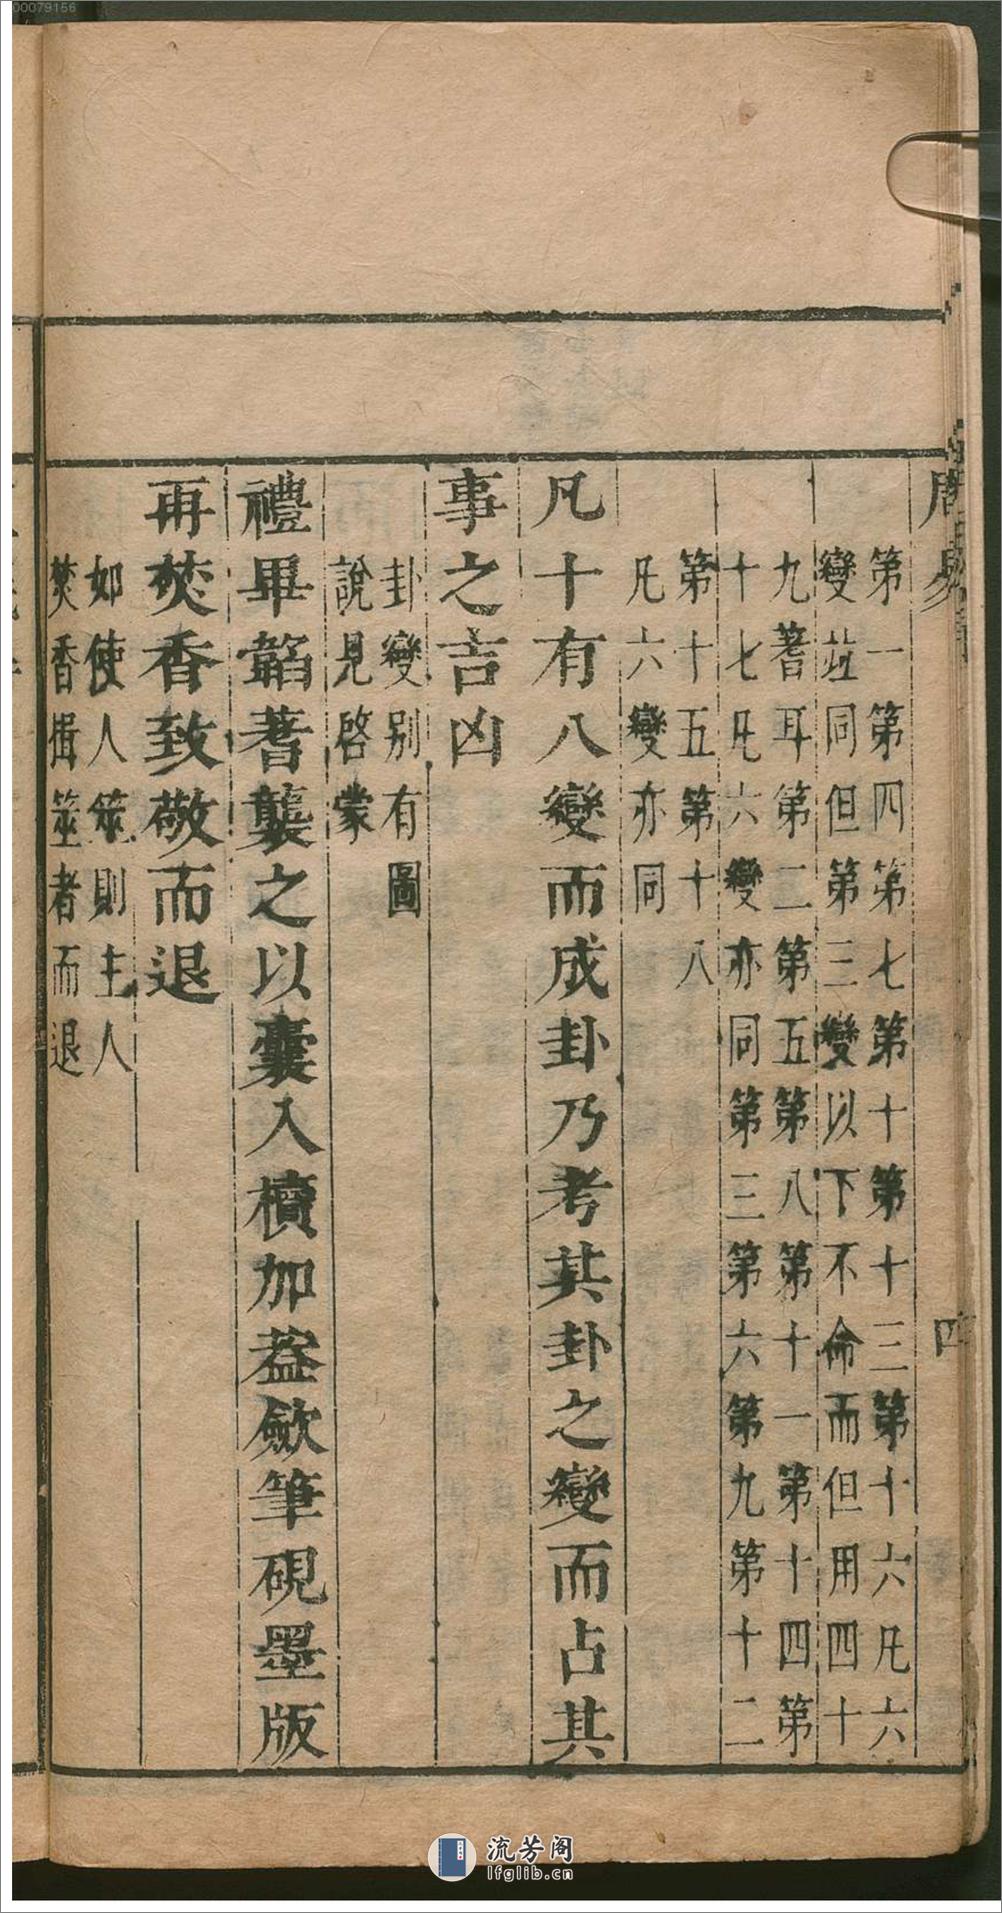 00079156
周易
四
第一第四第七第十第十三第十六凡六
變並同但第三變以下不命而但用四十
九蓍耳第二第五第八第十一第十四第
十七凡六變亦同第三第六第九第十二
第十五第十八
凡六變亦同
凡十有八變而成卦乃考其卦之變而占其
事之吉凶
卦變别有圖
說見啓蒙
禮畢韜蓍襲之以囊入櫝加葢歛筆硯墨版
再焚香致敬而退
如使人筮則主人
焚香揖筮者而退
流芳阁
lfglib.cn